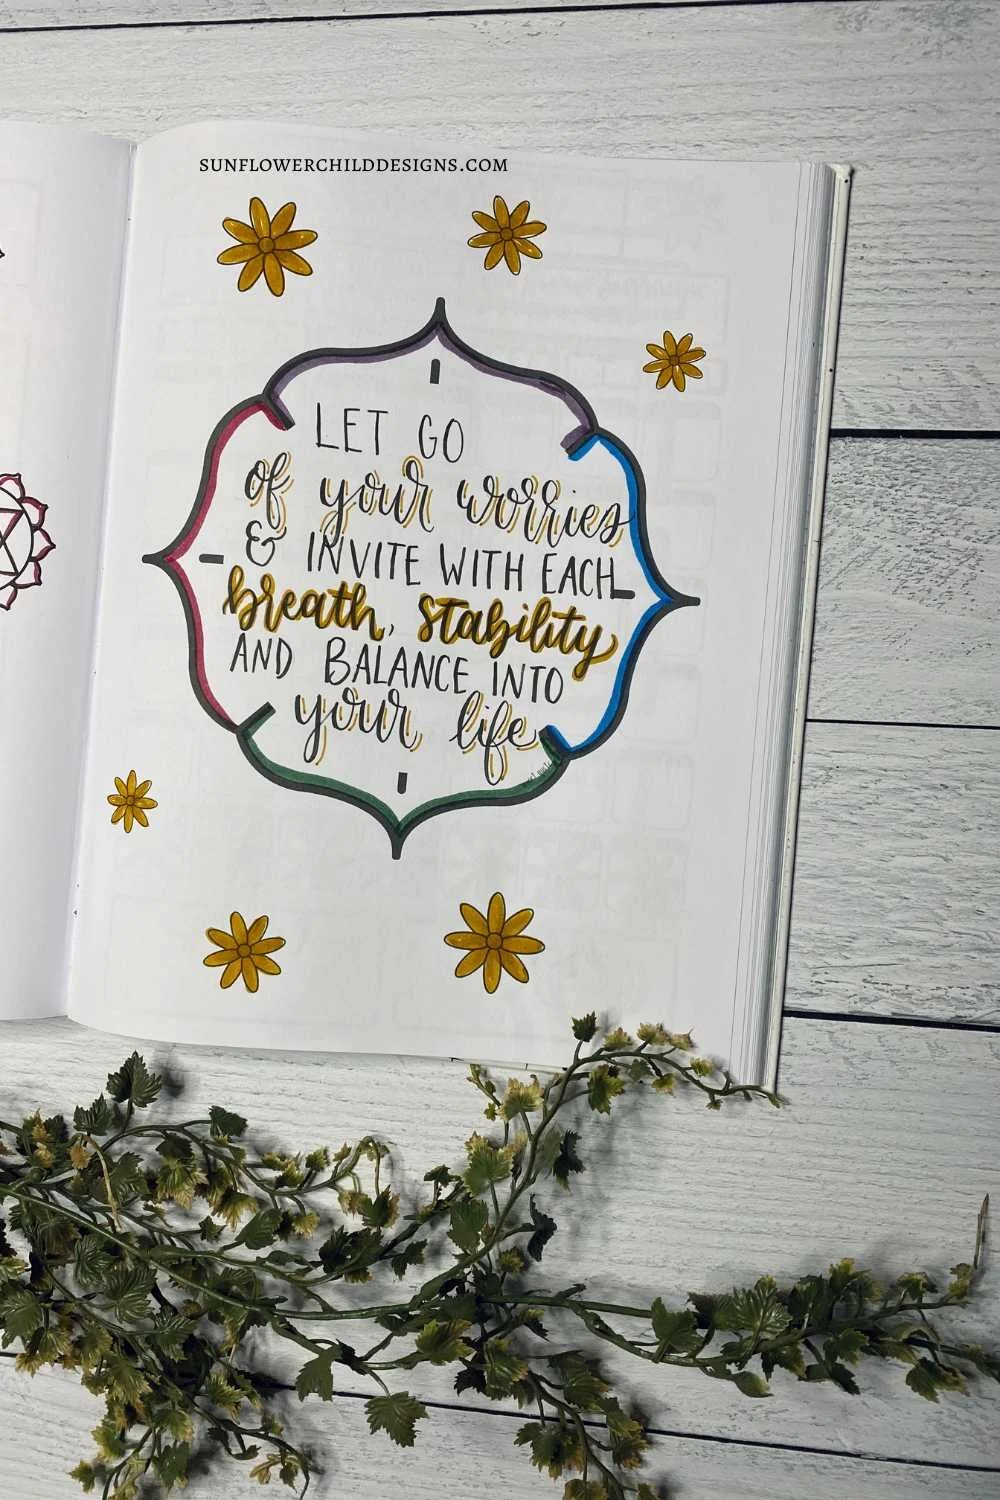 SUNFLOWERCHILDDESIGNS.COM
LET GO
of your worries
& INVITE WITH EACH
breath, stability
AND BALANCE INTO
your life